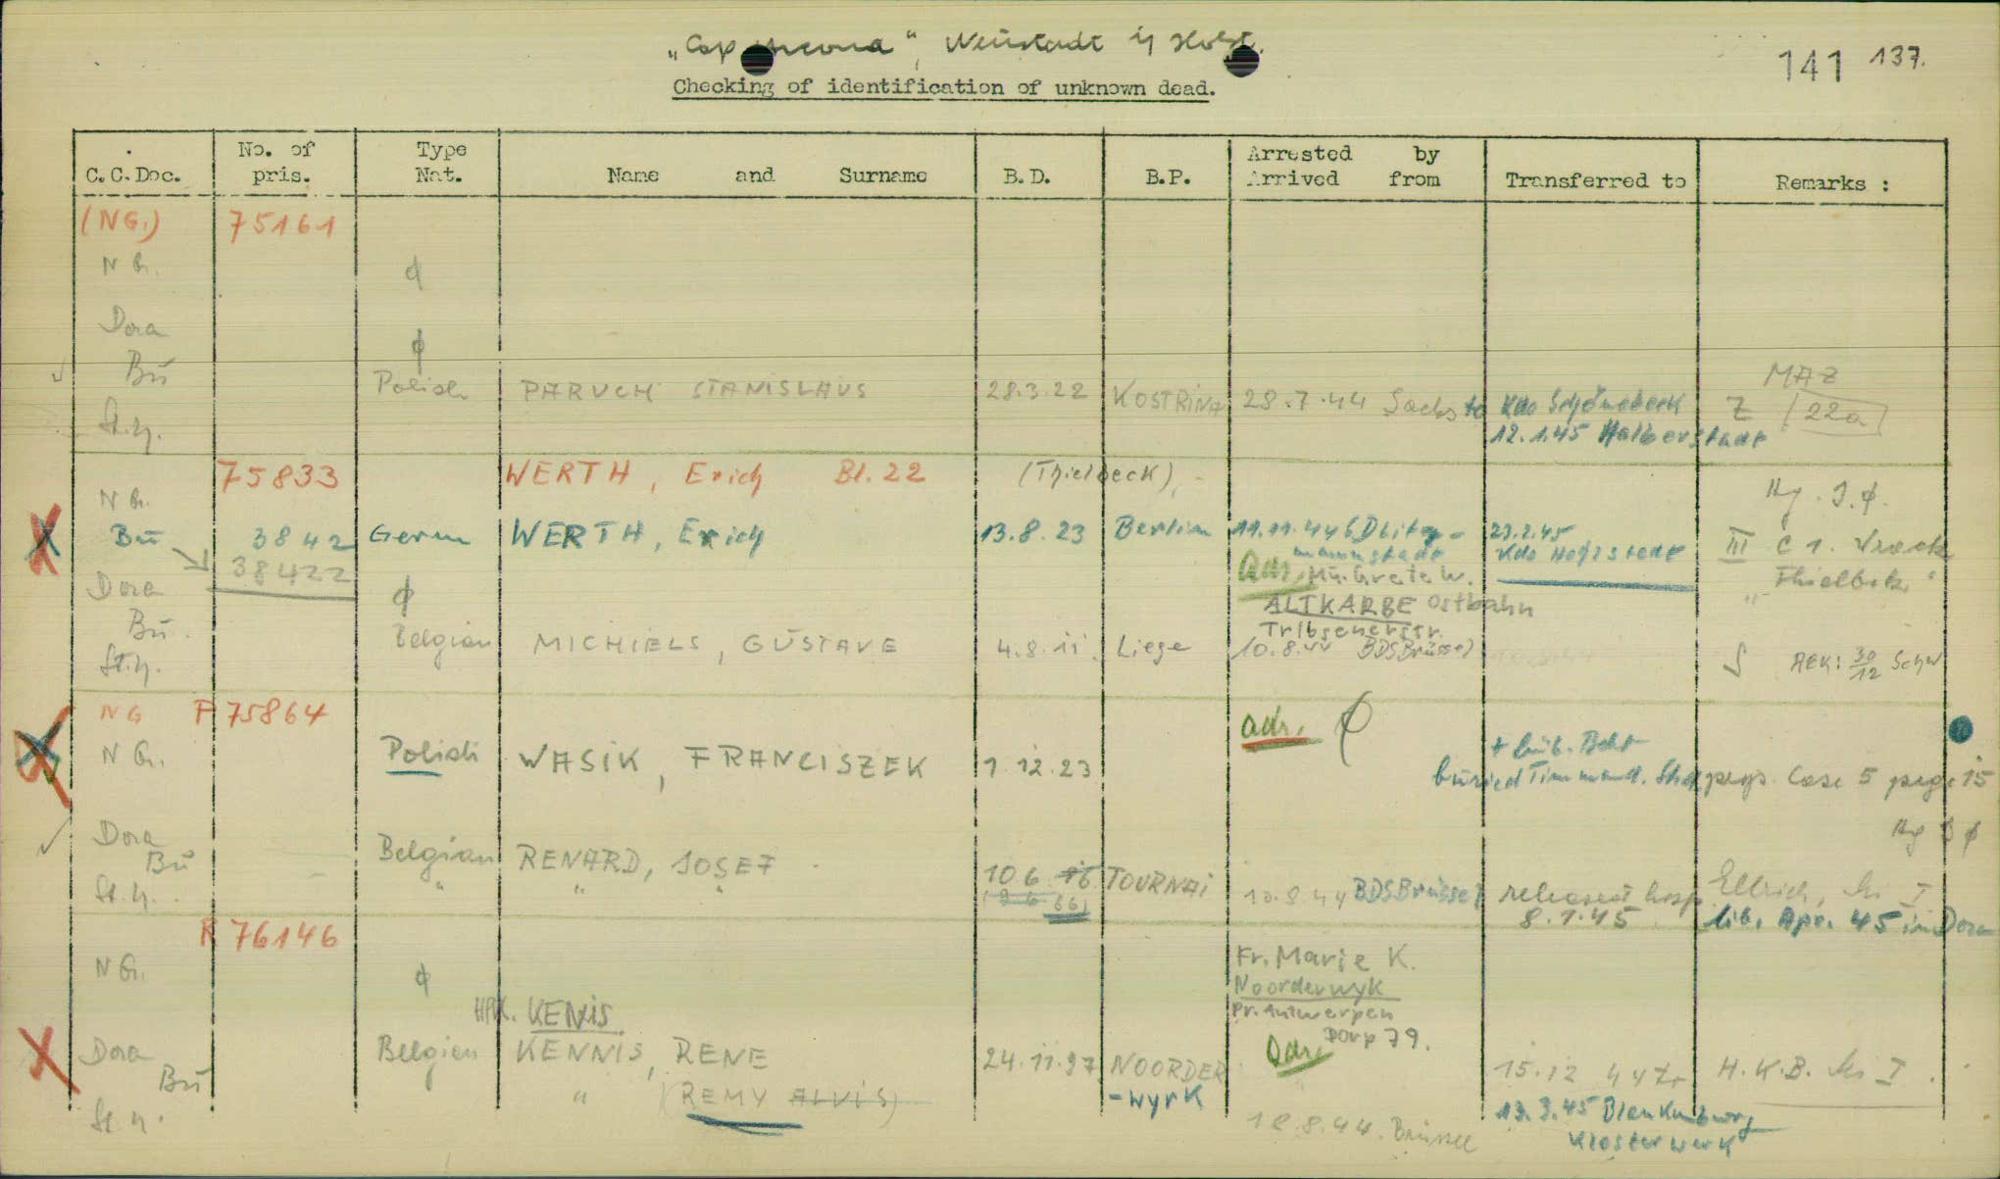 "Cap Arcona", Neustadt i/ Holst.
141 137.
Checking of identification of unknown dead.
C.C.Doc. No. of pris. Type Nat. Name and Surname B.D. B.P. Arrested by Arrived from Transferred to Remarks :
(NG.) 75161
N G. ϕ
Dora ϕ
MAZ
Bu Polish PARUCH STANISLAUS 28.3.22 KOSTRINA 28.7.44 Sachs to Kdo Schönebeck Z 22a
St.y. 12.1.45 Halberstadt
75833 WERTH, Erich Bl. 22 (Thielbeck)
N G.
Bu 3842 Germ WERTH, Erich 13.8.23 Berlin 11.11.44 SD Litzmannstadt 23.2.45 Kdo III C 1. Wrack
38422 Adr. Mu. Grete W. "Thielbek"
Dora ϕ ALTKARBE Ostbahn
Bu.
St.y. Belgian MICHIELS, GUSTAVE 4.8.11. Liege 10.8.44 BDS Brüssel S REK: 30/12 Schw
NG P 75864 adr. ϕ
N G. Polish WASIK, FRANCISZEK 1.12.23 buried Timmend. Case 5 page 15
Dora
Bu Belgian RENARD, JOSEF 10 6 16 TOURNAI 10.8.44 BDS Brüssel released hosp. Ellrich,
St.y. " " " 8.1.45 lib. Apr. 45 in Dora
R 76146
N G. ϕ Fr. Marie K.
Noorderwyk
KENIS Pr. Antwerpen
Dorp 79.
Dora Belgien KENNIS, RENE 24.11.97 NOORDER Adr. 15.12 44 H.K.B.
Bu " (REMY ALVIS) -wyrk
St.y. 18.8.44. Brüssel 13.3.45 Blenkenburg
Klosterwerk